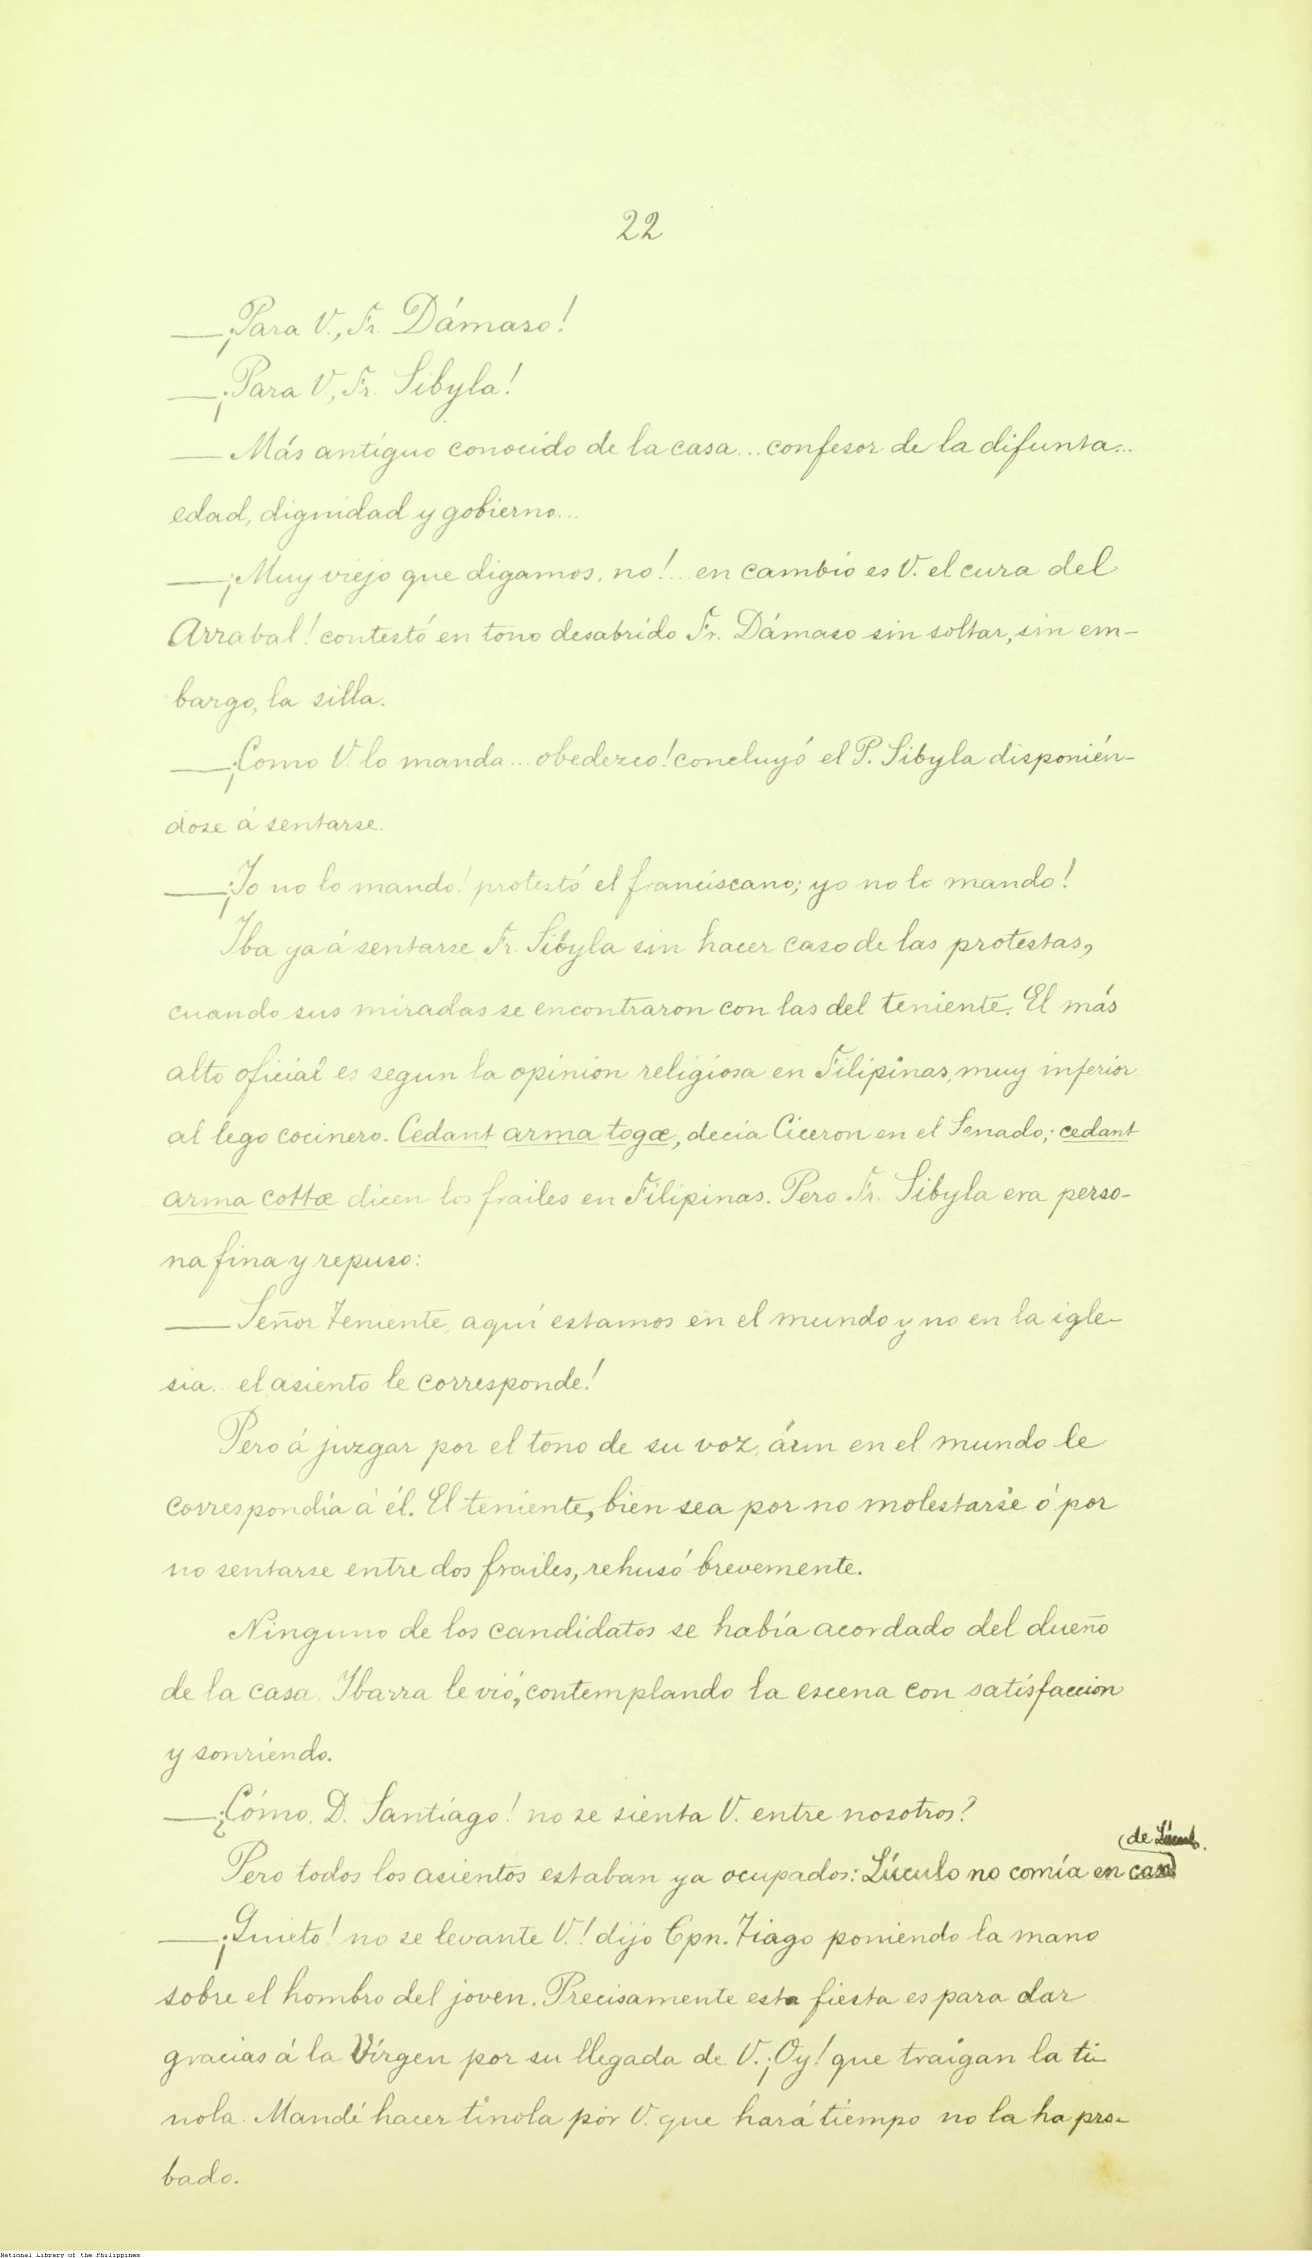 22
—¡Para V., Fr. Dámaso!
—¡Para V., Fr. Sibyla!
— Más antiguo conocido de la casa... confesor de la difunta...
edad, dignidad y gobierno...
—¡Muy viejo que digamos, no!... en cambio es V. el cura del
Arrabal! contestó en tono desabrido Fr. Dámaso sin soltar, sin em-
bargo, la silla.
—¡Como V. lo manda... obedezco! concluyó el P. Sibyla disponién-
dose á sentarse.
—¡Yo no lo mando! protestó el franciscano; yo no lo mando!
Iba ya á sentarse Fr. Sibyla sin hacer caso de las protestas,
cuando sus miradas se encontraron con las del teniente. El más
alto oficial es segun la opinion religiosa en Filipinas, muy inferior
al lego cocinero. Cedant arma togæ, decía Ciceron en el Senado; cedant
arma cottæ dicen los frailes en Filipinas. Pero Fr. Sibyla era perso-
na fina y repuso:
— Señor Teniente, aquí estamos en el mundo y no en la igle-
sia... el asiento le corresponde!
Pero á juzgar por el tono de su voz, áun en el mundo le
correspondía á él. El teniente, bien sea por no molestarse ó por
no sentarse entre dos frailes, rehusó brevemente.
Ninguno de los candidatos se había acordado del dueño
de la casa. Ibarra le vió, contemplando la escena con satisfaccion
y sonriendo.
—¿Cómo, D. Santiago! no se sienta V. entre nosotros?
(de
Pero todos los asientos estaban ya ocupados: Lúculo no comía en casa
—¡Quieto! no se levante V.! dijo Cpn. Tiago poniendo la mano
sobre el hombro del joven. Precisamente esta fiesta es para dar
gracias á la Vírgen por su llegada de V. ¡Oy! que traigan la ti-
nola. Mandé hacer tinola por V. que hará tiempo no la ha pro-
bado.
National Library of the Philippines